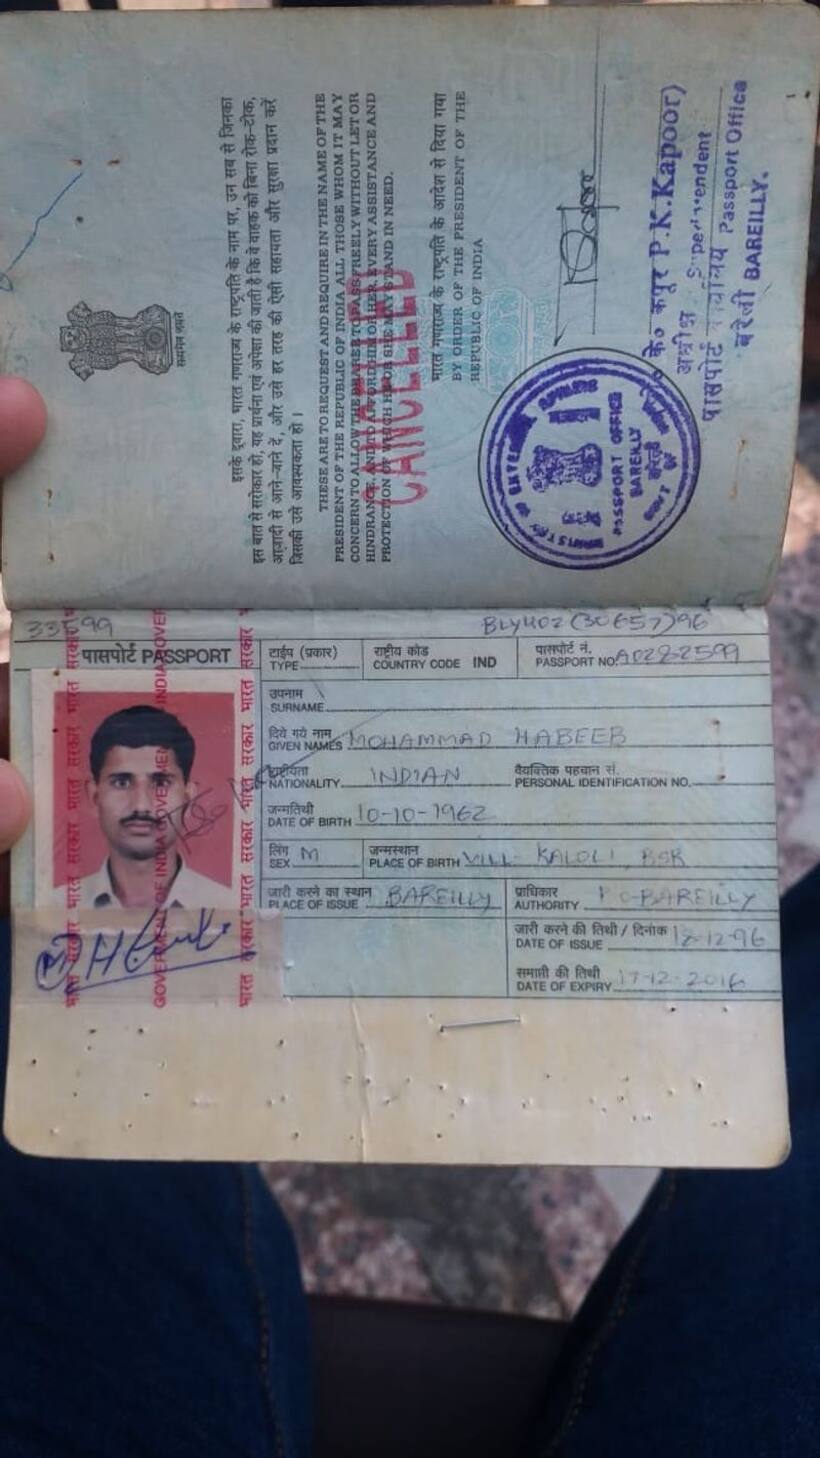 सत्यमेव जयते
इसके द्वारा, भारत गणराज्य के राष्ट्रपति के नाम पर, उन सब से जिनका
इस बात से सरोकार हो, यह प्रार्थना एवं अपेक्षा की जाती है कि वे वाहक को बिना रोक-टोक,
आज़ादी से आने-जाने दें, और उसे हर तरह की ऐसी सहायता और सुरक्षा प्रदान करें
जिसकी उसे आवश्यकता हो ।
THESE ARE TO REQUEST AND REQUIRE IN THE NAME OF THE
PRESIDENT OF THE REPUBLIC OF INDIA ALL THOSE WHOM IT MAY
CONCERN TO ALLOW THE BEARER TO PASS FREELY WITHOUT LET OR
HINDRANCE, AND TO AFFORD HIM OR HER, EVERY ASSISTANCE AND
PROTECTION OF WHICH HE OR SHE MAY STAND IN NEED.
CANCELLED
भारत गणराज्य के राष्ट्रपति के आदेश से दिया गया
BY ORDER OF THE PRESIDENT OF THE
REPUBLIC OF INDIA
PASSPORT OFFICE
BAREILLY
बरेली
के० कपूर P.K.Kapoor)
अधीक्षक
पासपोर्ट कार्यालय Passport Office
बरेली BAREILLY.
33599
BLY402(30657)96
पासपोर्ट PASSPORT
टाईप (प्रकार)
TYPE
राष्ट्रीय कोड
COUNTRY CODE IND
पासपोर्ट नं.
PASSPORT NO. A0282599
उपनाम
SURNAME
दिये गये नाम
GIVEN NAMES MOHAMMAD HABEEB
राष्ट्रीयता
NATIONALITY INDIAN
वैयक्तिक पहचान सं.
PERSONAL IDENTIFICATION NO.
जन्मतिथी
DATE OF BIRTH 10-10-1962
लिंग
SEX M
जन्मस्थान
PLACE OF BIRTH VILL- KALOLI, BSR
जारी करने का स्थान
PLACE OF ISSUE BAREILLY
प्राधिकार
AUTHORITY P O-BAREILLY
जारी करने की तिथी / दिनांक
DATE OF ISSUE 18-12-96
समाप्ती की तिथी
DATE OF EXPIRY 17-12-2016
भारत सरकार भारत सरकार भारत सरकार भारत सरकार
GOVERNMENT OF INDIA GOVERNMENT OF INDIA GOVER
भारत सरकार भारत सरकार भारत सरकार भारत सरकार